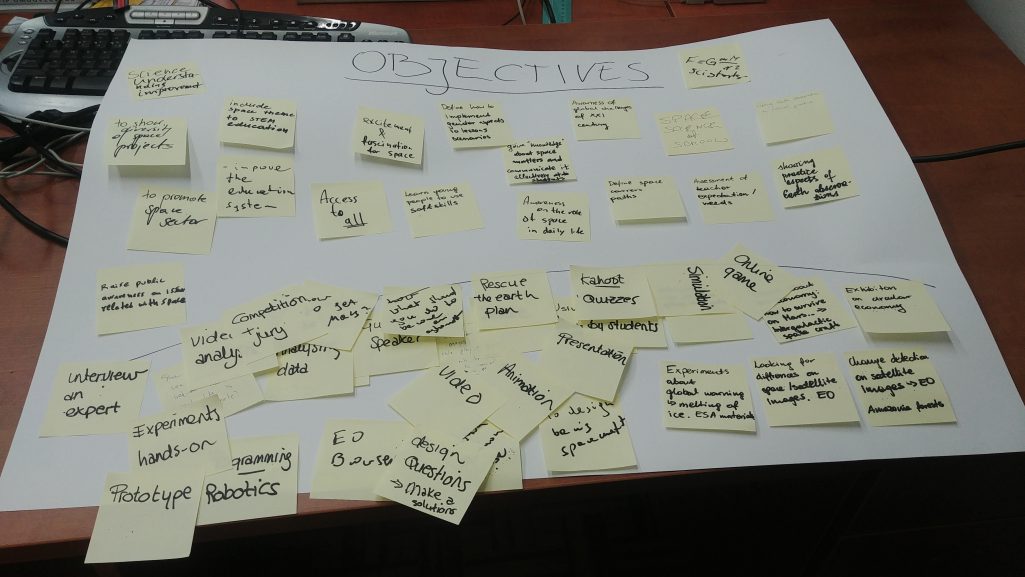 OBJECTIVES
Science
understa-
nding
improvement
to show
diversity
of space
projects
include
space theme
to STEM
education
excitement
&
fascination
for space
Define how to
implement
gender aspects
to lessons
scenarios
Awareness of
global challenges
of XXI
century
SPACE
SCIENCE
at
SCHOOLS
to promote
space
sector
improve
the
education
system
Access
to all
Learn young
people to use
soft skills
give "knowledge"
about space
matters and
communicate it
Awareness
on the role
of space
in daily life
Define space
carriers
paths
Assessment of
teacher
expectation/
needs
showing
practice
aspects of
Earth observa-
tions
Raise public
awareness on
related with space
Competition
+ jury
Video
analy.
analysing
data
speaker
Rescue
the earth
plan
Kahoot
Quizzes
by students
Simulation
Online
game
how to survive
on Mars...→
Intergalactic
space craft
Exhibition
on circular
economy
interview
an
expert
Experiments
hands-on
Prototype
gramming
Robotics
EO
Browser
Video
Animation
Presentation
design
Questions
→ Make a
solutions
to design
being
spacecraft
Experiments
about
global warming
melting of
ice. ESA materials
Looking for
differences on
space/satellite
images. EO
Change detection
on satellite
images → EO
Amazonia forests